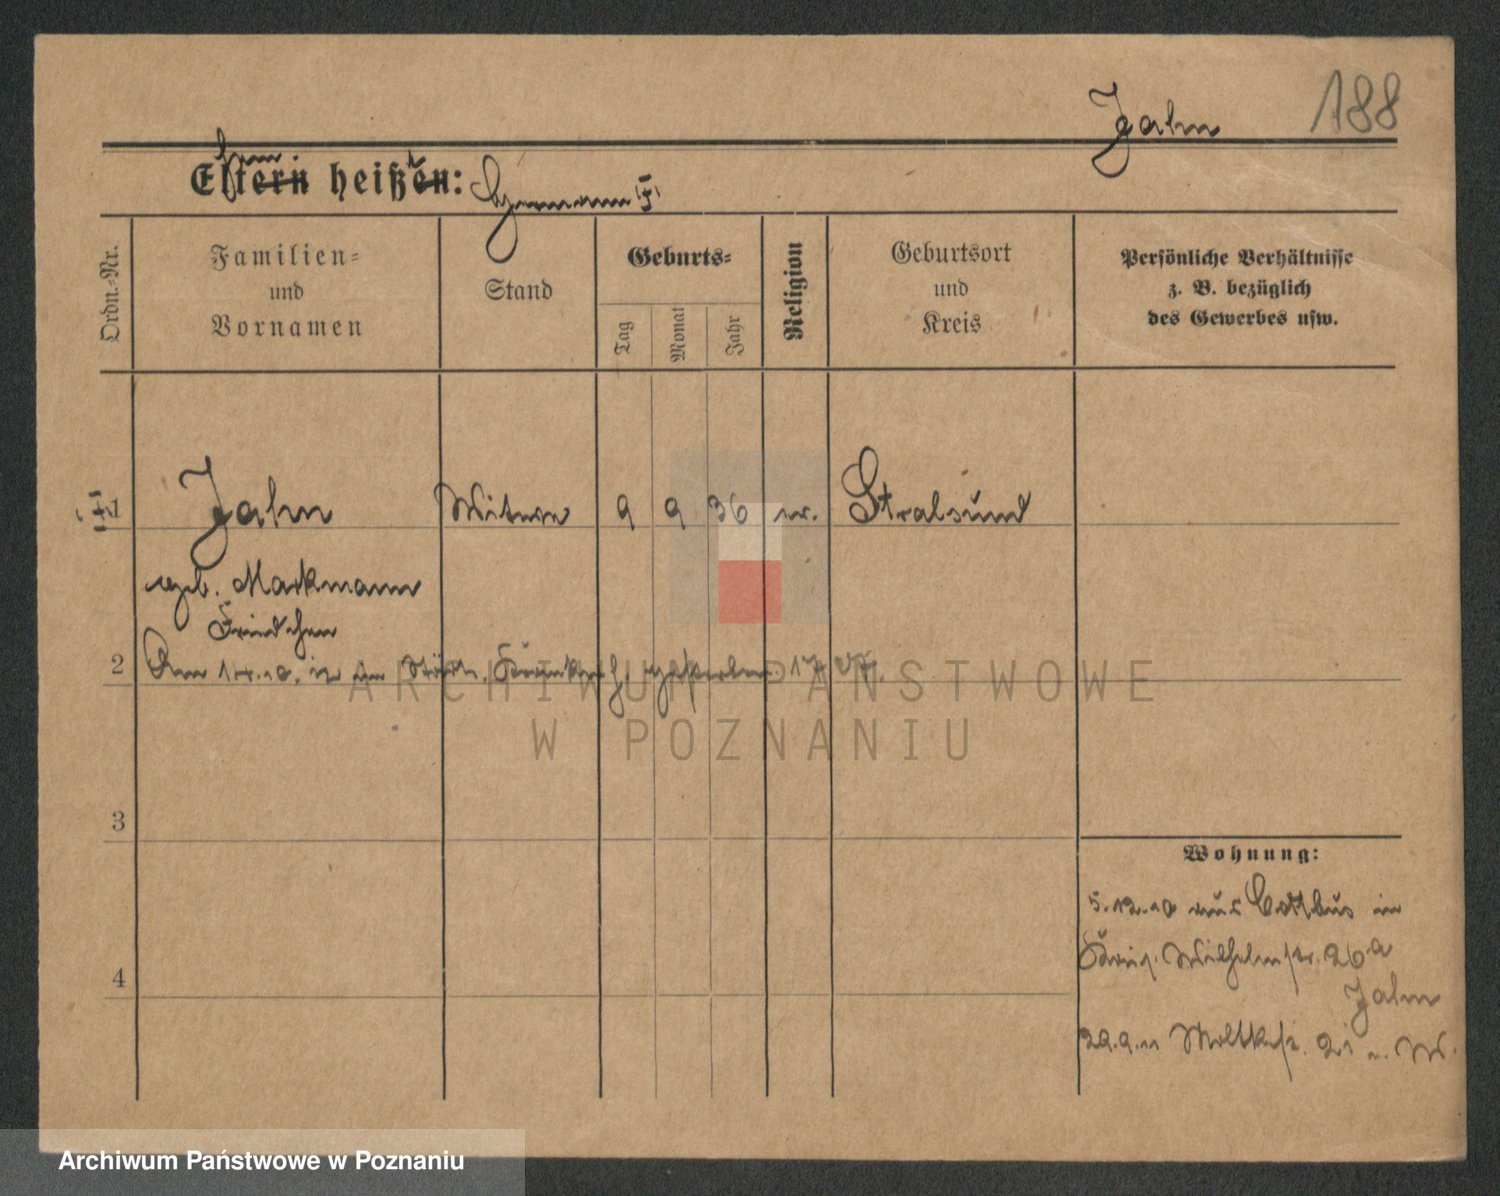 188
Jahn
Eltern heißen:
Hermann
Ordn.-Nr.
Familien-
und
Vornamen
Stand
Geburts-
Tag
Monat
Jahr
Religion
Geburtsort
und
Kreis
Persönliche Verhältnisse
z. B. bezüglich
des Gewerbes usw.
1 Jahn Witwe 9 9 36 ev. Stralsund
geb. Markmann
Friedchen
2 Am in im gestorben
3
4
Wohnung:
5.12.10 aus Cottbus in
Wilhelmstr. 26a
Jahn
29.9.11 Moltkestr. 21
ARCHIWUM PAŃSTWOWE
W POZNANIU
Archiwum Państwowe w Poznaniu